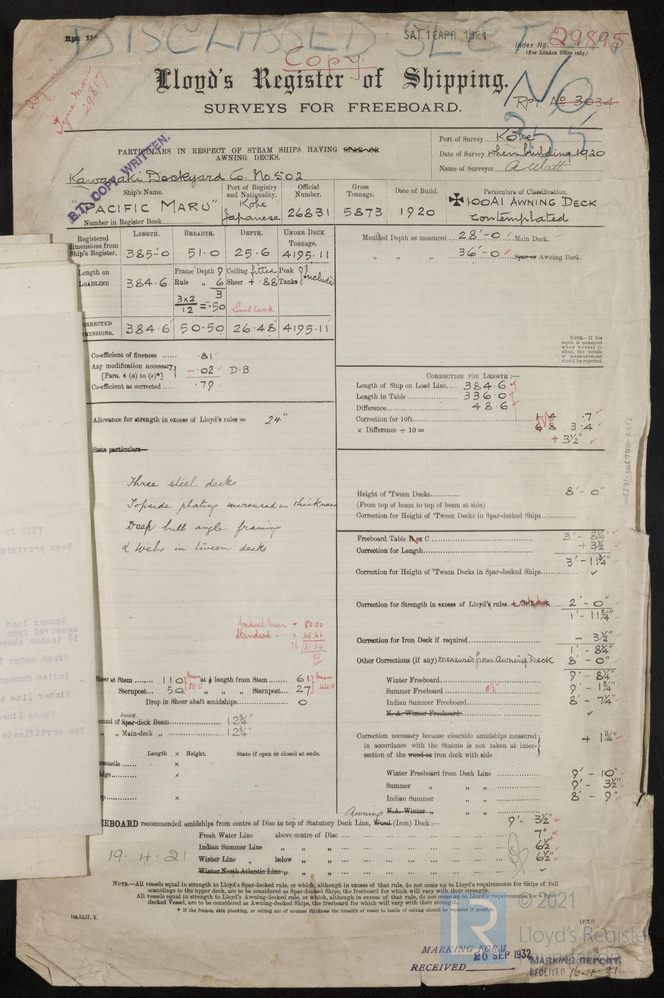 Rpt. 11
DISCLASSED SECT
SAT. 16 APR. 1921
Index No. 29895
(For London Office only.)
Copy
Lloyd's Register of Shipping.
No
Rpt. No 3034
355
SURVEYS FOR FREEBOARD.
PARTICULARS IN RESPECT OF STEAM SHIPS HAVING SPAR OR
AWNING DECKS.
B.T. COPY WRITTEN.
Port of Survey Kobe
Date of Survey When building 1920
Name of Surveyor A Watt
Kawasaki Dockyard Co. No. 502
Ship's Name.
Port of Registry and Nationality.
Official Number.
Gross Tonnage.
Date of Build.
Particulars of Classification.
"PACIFIC MARU"
Kobe
Japanese
26831
5873
1920
✠100A1 AWNING DECK
Contemplated
Number in Register Book
Registered dimensions from Ship's Register.
LENGTH. BREADTH. DEPTH. UNDER DECK TONNAGE.
385.0 51.0 25.6 4195.11
Length on LOADLINE
384.6
Frame Depth 9
Rule 6
3
3x2/12 = .50
Ceiling fitted
Sheer + .88
Peak Tanks Included
384.6 50.50 26.48 4195.11
Moulded Depth as measured 28'-0 Main Deck.
" " " 36'-0 Spar or Awning Deck.
NOTE.—If the
Co-efficient of fineness .81
Any modification necessary [Para. 4 (a) to (e)*] - .02 D.B
Co-efficient as corrected .79
CORRECTION FOR LENGTH:—
Length of Ship on Load Line 384.6
Length in Table 336.0
Difference 48.6
Correction for 10ft. .7
× Difference ÷ 10 = 3.4
+ 3½"
Allowance for strength in excess of Lloyd's rules = 24"
State particulars—
Three steel decks
Topside plating increased in thickness
Deep bulb angle framing
& Webs in tween decks
Height of 'Tween Decks 8'-0"
(From top of beam to top of beam at side)
Correction for Height of 'Tween Decks in Spar-decked Ships
Freeboard Table B or C 3'-8¼
Correction for Length + 3½
3'-11¾"
Correction for Height of 'Tween Decks in Spar-decked Ships
Correction for Strength in excess of Lloyd's rules. 2'-0"
1'-11¾"
Correction for Iron Deck if required - 3½"
1'-8¼"
Other Corrections (if any) measured from Awning Deck 8'-0"
Winter Freeboard 9'-8¼"
Summer Freeboard 6½" 9'-1¾"
Indian Summer Freeboard 8'-7¼"
N. A. Winter Freeboard
Gradual Mean = 80.00
Standard - 48.46
31.54
Sheer at Stem 110 mean 80.0 at ⅛ length from Stem 61 mean 44.0
Sternpost 50 " " Sternpost 27
Drop in Sheer abaft amidships 0
Awng.
Round of Spar-deck Beam 12¾"
" " Main-deck " 12¾"
Length × Height. State if open or closed at ends.
Correction necessary because clearside amidships measured
in accordance with the Statute is not taken at inter-
section of the wood or iron deck with side
+ 1¾"
Winter Freeboard from Deck Line 9'-10"
Summer " " " 9'-3½"
Indian Summer " " 8'-9"
N.A. Winter " "
FREEBOARD recommended amidships from centre of Disc to top of Statutory Deck Line, Awning Wood (Iron) Deck:— 9'-3½"
Fresh Water Line above centre of Disc 7"
Indian Summer Line " " 6½"
Winter Line below " " 6½"
Winter North Atlantic Line "
19.4.21
NOTE.—All vessels equal in strength to Lloyd's Spar-decked rule, or which, although in excess of that rule, do not come up to Lloyd's requirements for Ships of full
scantlings to the upper deck, are to be considered as Spar-decked Ships, the freeboard for which will vary with their strength.
All vessels equal in strength to Lloyd's Awning-decked rule, or which, although in excess of that rule, do not come up to Lloyd's requirements for a Spar-
decked Vessel, are to be considered as Awning-decked Ships, the freeboard for which will vary with their strength.
© 2021
Lloyd's Register
MARKING FORM
RECEIVED 20 SEP 1932
MARKING REPORT.
RECEIVED 16.4.21